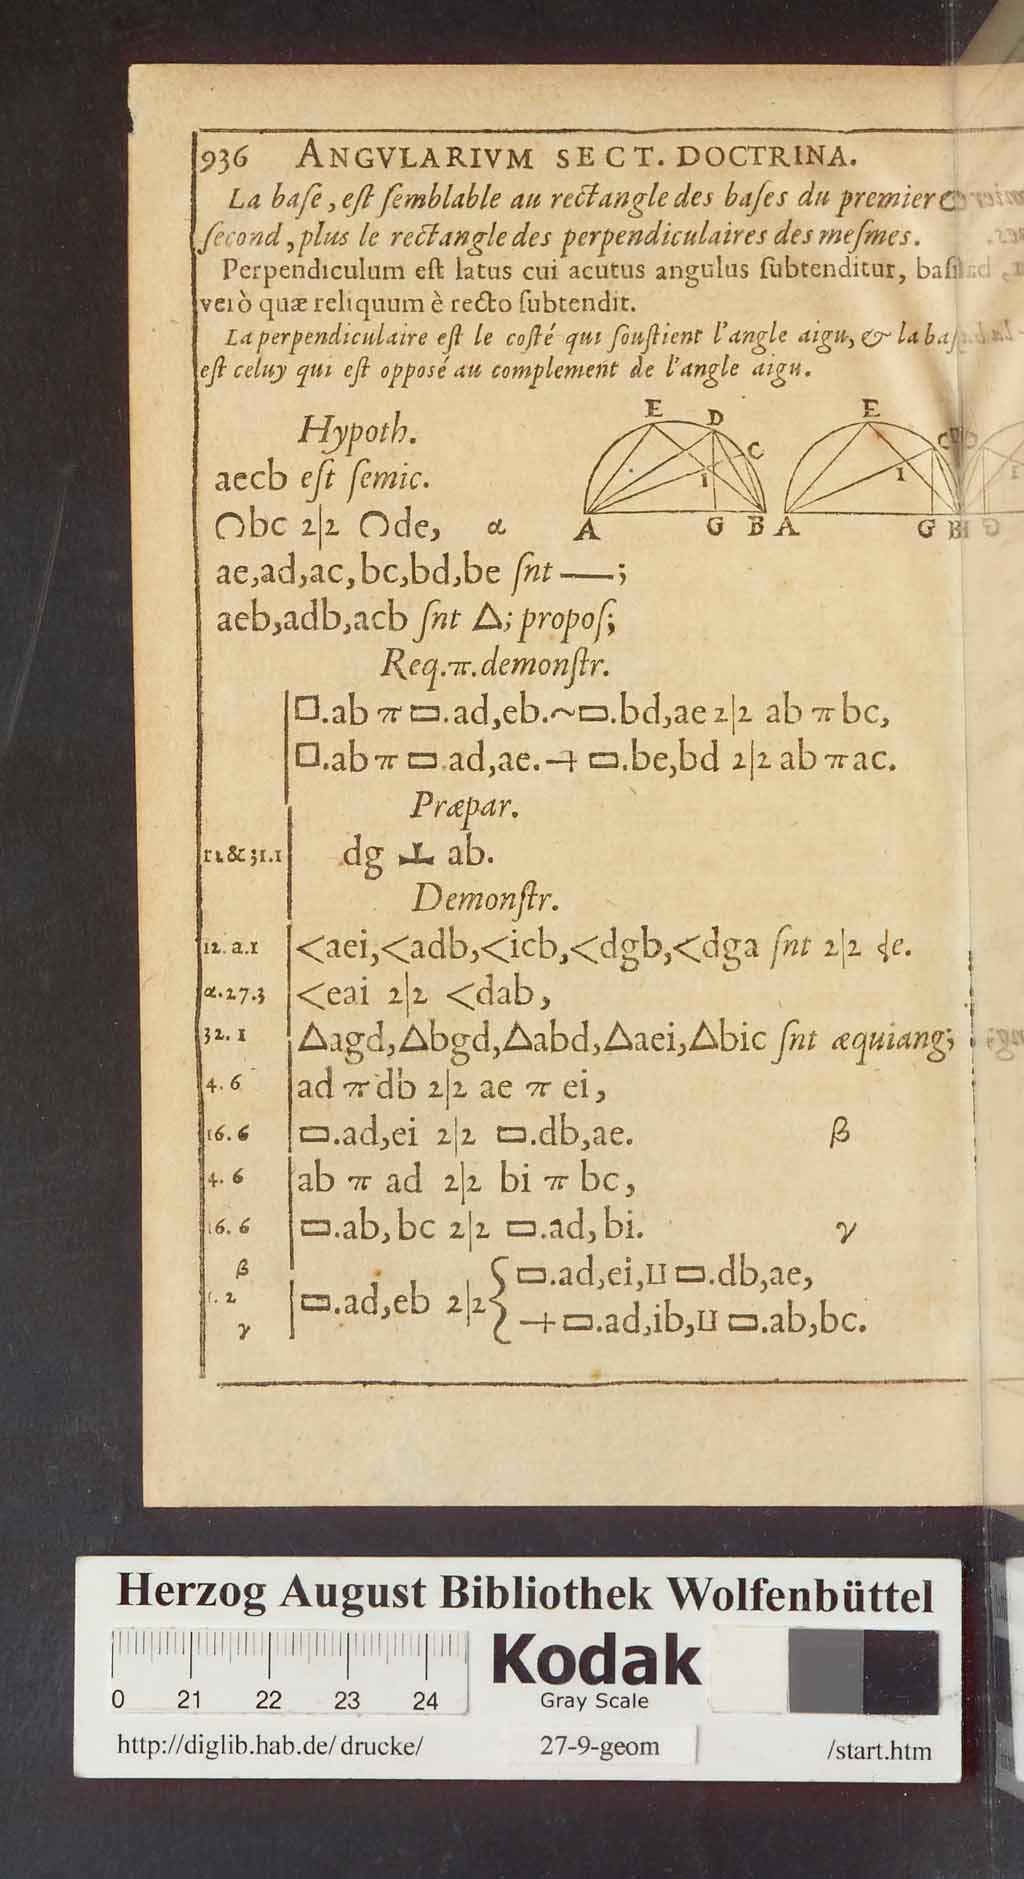 936 ANGVLARIVM SECT. DOCTRINA.
La baſe, eſt ſemblable au rectangle des baſes du premier &
ſecond, plus le rectangle des perpendiculaires des meſmes.
Perpendiculum eſt latus cui acutus angulus ſubtenditur, baſis
verò quæ reliquum è recto ſubtendit.
La perpendiculaire eſt le coſté qui ſouſtient l'angle aigu, & la baſe
eſt celuy qui eſt opposé au complement de l'angle aigu.
E D C I A G B
E C I A G B
Hypoth.
aecb eſt ſemic.
◠bc 2|2 ◠de, α
ae,ad,ac,bc,bd,be ſnt —;
aeb,adb,acb ſnt △; propoſ;
Req.π.demonſtr.
□.ab π ▭.ad,eb.~▭.bd,ae 2|2 ab π bc,
□.ab π ▭.ad,ae.+ ▭.be,bd 2|2 ab π ac.
Præpar.
12 & 31.1 dg ⊥ ab.
Demonſtr.
12. a.1 <aei,<adb,<icb,<dgb,<dga ſnt 2|2 ⦟e.
α.27.3 <eai 2|2 <dab,
32. 1 △agd,△bgd,△abd,△aei,△bic ſnt æquiang;
4. 6 ad π db 2|2 ae π ei,
16. 6 ▭.ad,ei 2|2 ▭.db,ae. β
4. 6 ab π ad 2|2 bi π bc,
16. 6 ▭.ab,bc 2|2 ▭.ad,bi. γ
β
1. 2 ▭.ad,eb 2|2 { ▭.ad,ei,⊔ ▭.db,ae,
γ + ▭.ad,ib,⊔ ▭.ab,bc.
Herzog August Bibliothek Wolfenbüttel
Kodak
Gray Scale
0 21 22 23 24
http://diglib.hab.de/drucke/ 27-9-geom /start.htm